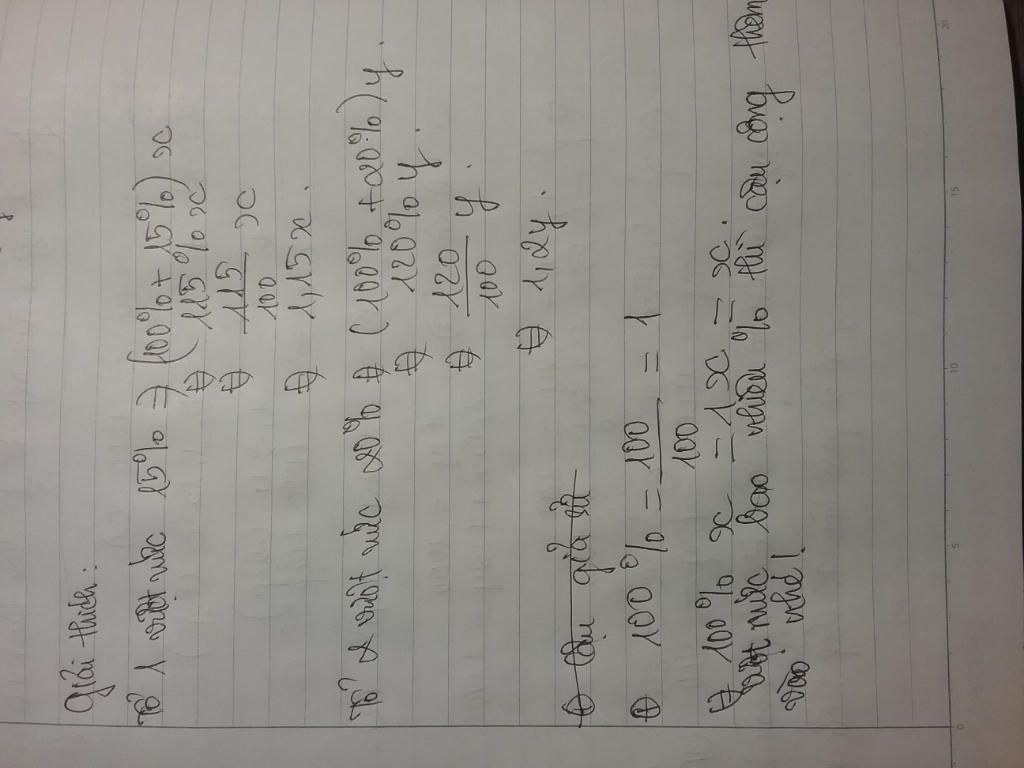 Giải thích:
Tổ 1 vượt mức 15% => (100% + 15%) x
<=> 115% x
<=> 115/100 x
<=> 1,15x.
Tổ 2 vượt mức 20% <=> (100% + 20%) y.
<=> 120% y.
<=> 120/100 y.
<=> 1,2y.
100% = 100/100 = 1
=> 100% x = 1x = x.
vượt mức bao nhiêu % thì cậu cộng thêm
vào nhé!